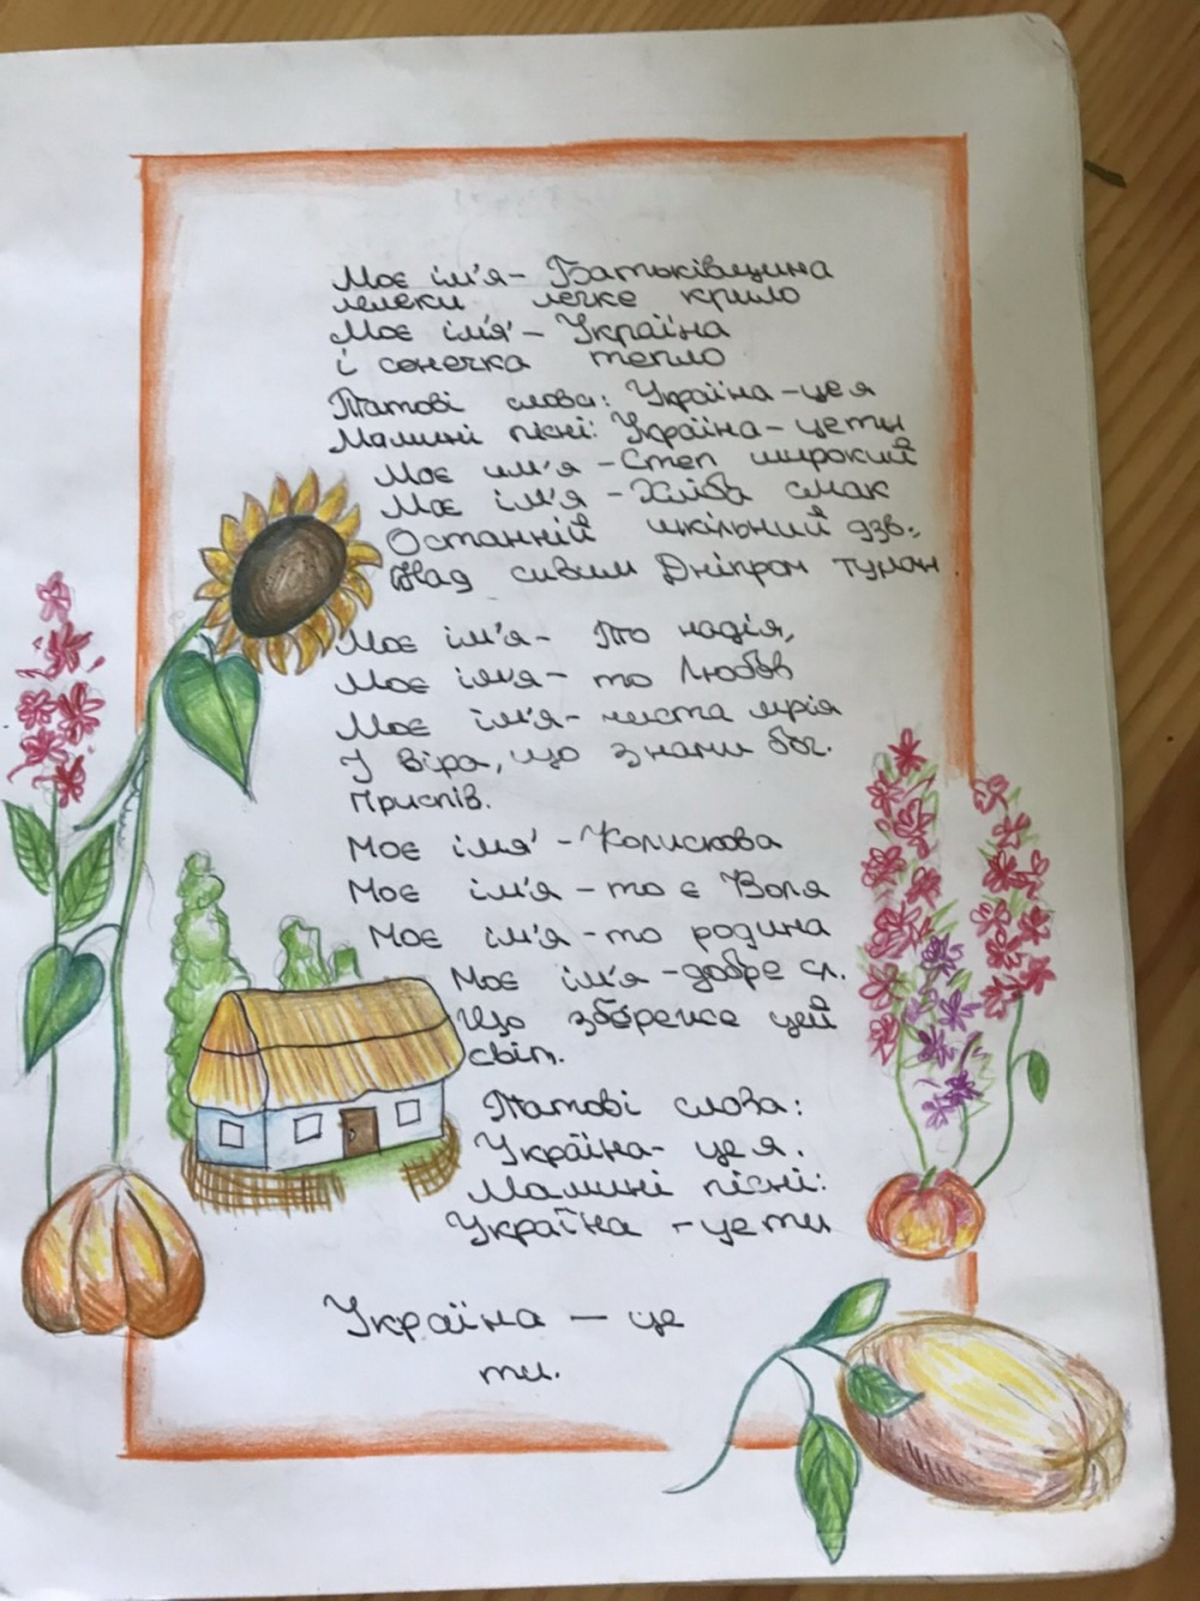 Моє ім'я - Батьківщина
лелеки легке крило
Моє ім'я - Україна
і сонечка тепло
Татові слова: Україна - це я
Мамині пісні: Україна - це ти
Моє им'я - Степ широкий
Моє ім'я - Хліба смак
Останній шкільний дзв.
Над сивим Дніпром туман
Моє ім'я - То надія,
Моє ім'я - то Любов
Моє ім'я - чиста мрія
І віра, що з нами бог.
Приспів.
Моє ім'я - Колискова
Моє ім'я - то є Воля
Моє ім'я - то родина
Моє ім'я - добре сл.
Що збереже цей
світ.
Татові слова:
Україна - це я.
Мамині пісні:
Україна - це ти
Україна — це
ти.